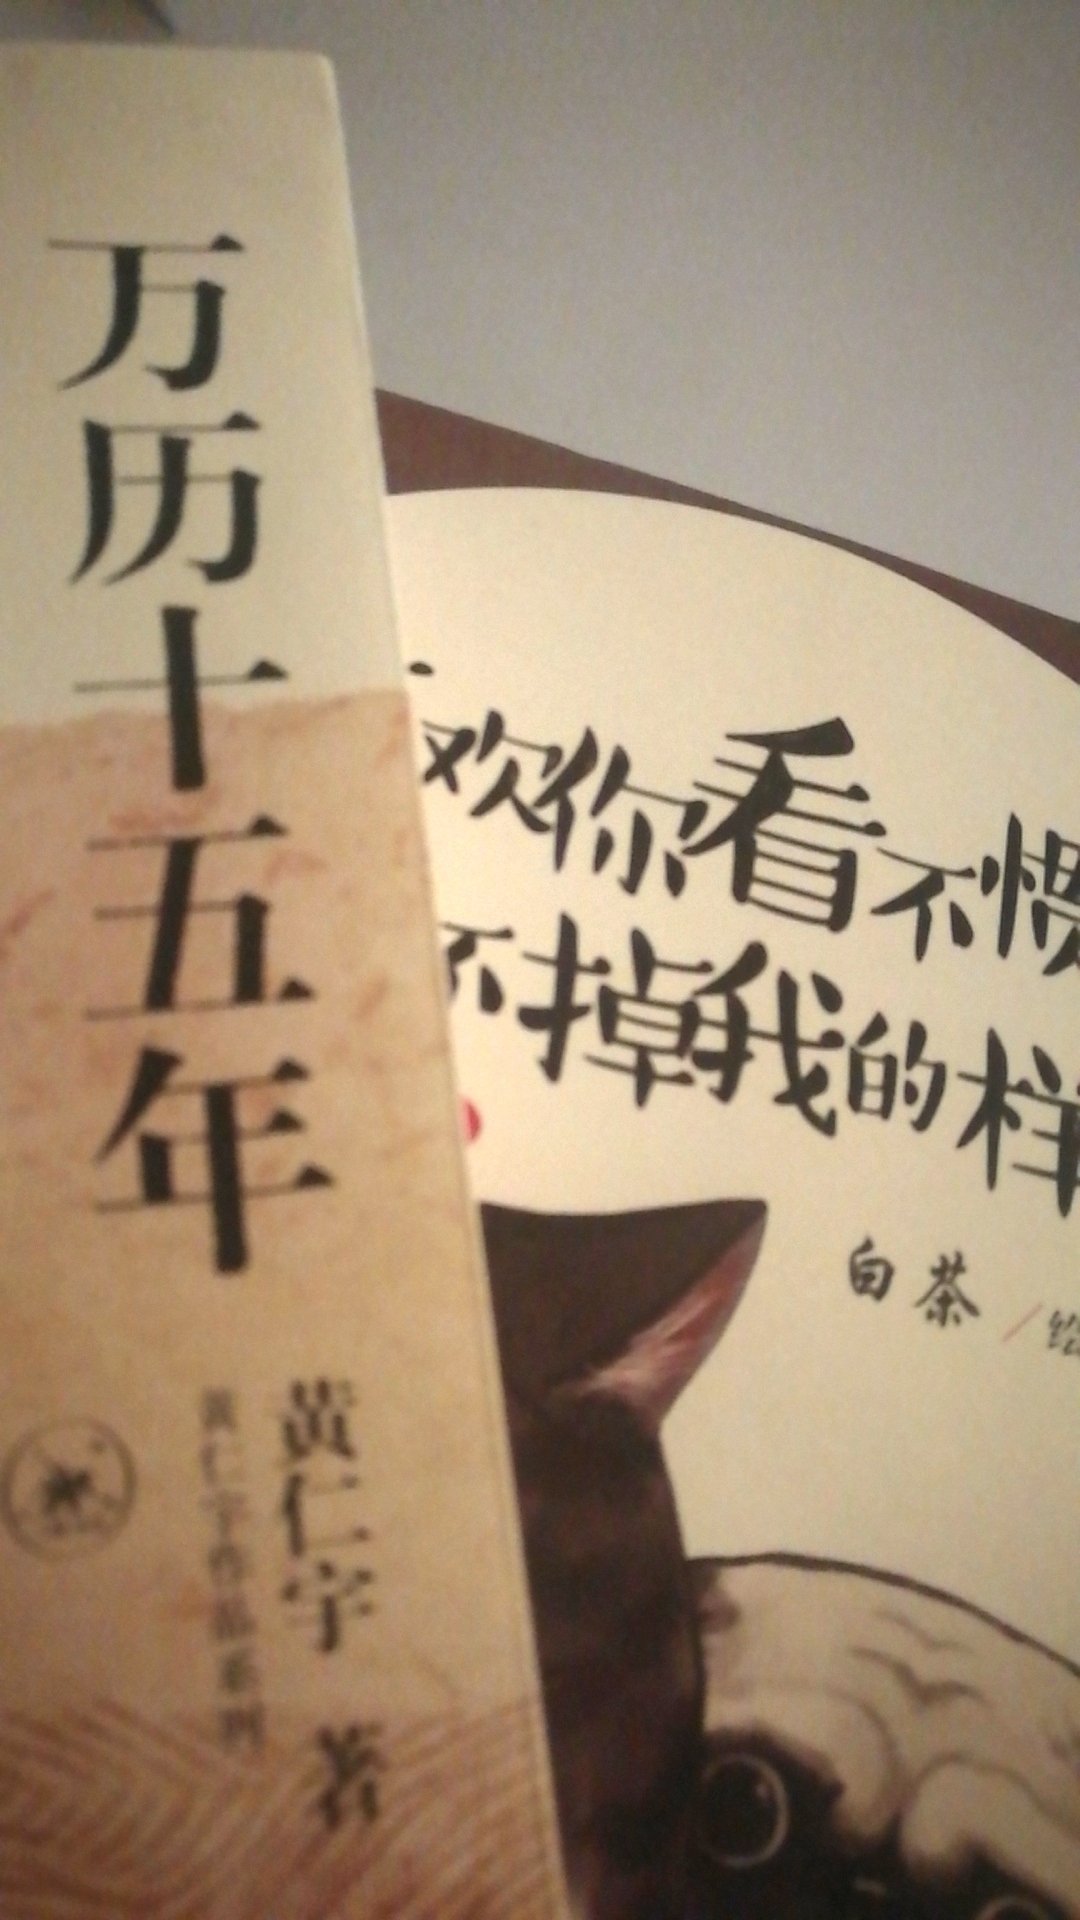 万历十五年
黄仁宇作品系列
黄仁宇 著
欢你看不惯
不掉我的样
白茶/绘